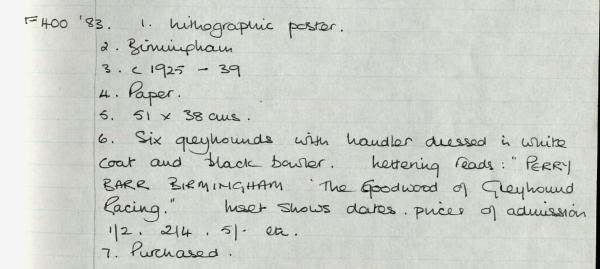 F400 '83. 1. Lithographic poster.
2. Birmingham
3. c 1925 - 39
4. Paper.
5. 51 x 38 cms.
6. Six greyhounds with handler dressed in white
coat and black bowler. Lettering reads: "PERRY
BARR BIRMINGHAM 'The Goodwood of Greyhound
Racing." Inset shows dates. prices of admission
1/2. 2/4. 5/- etc.
7. Purchased.